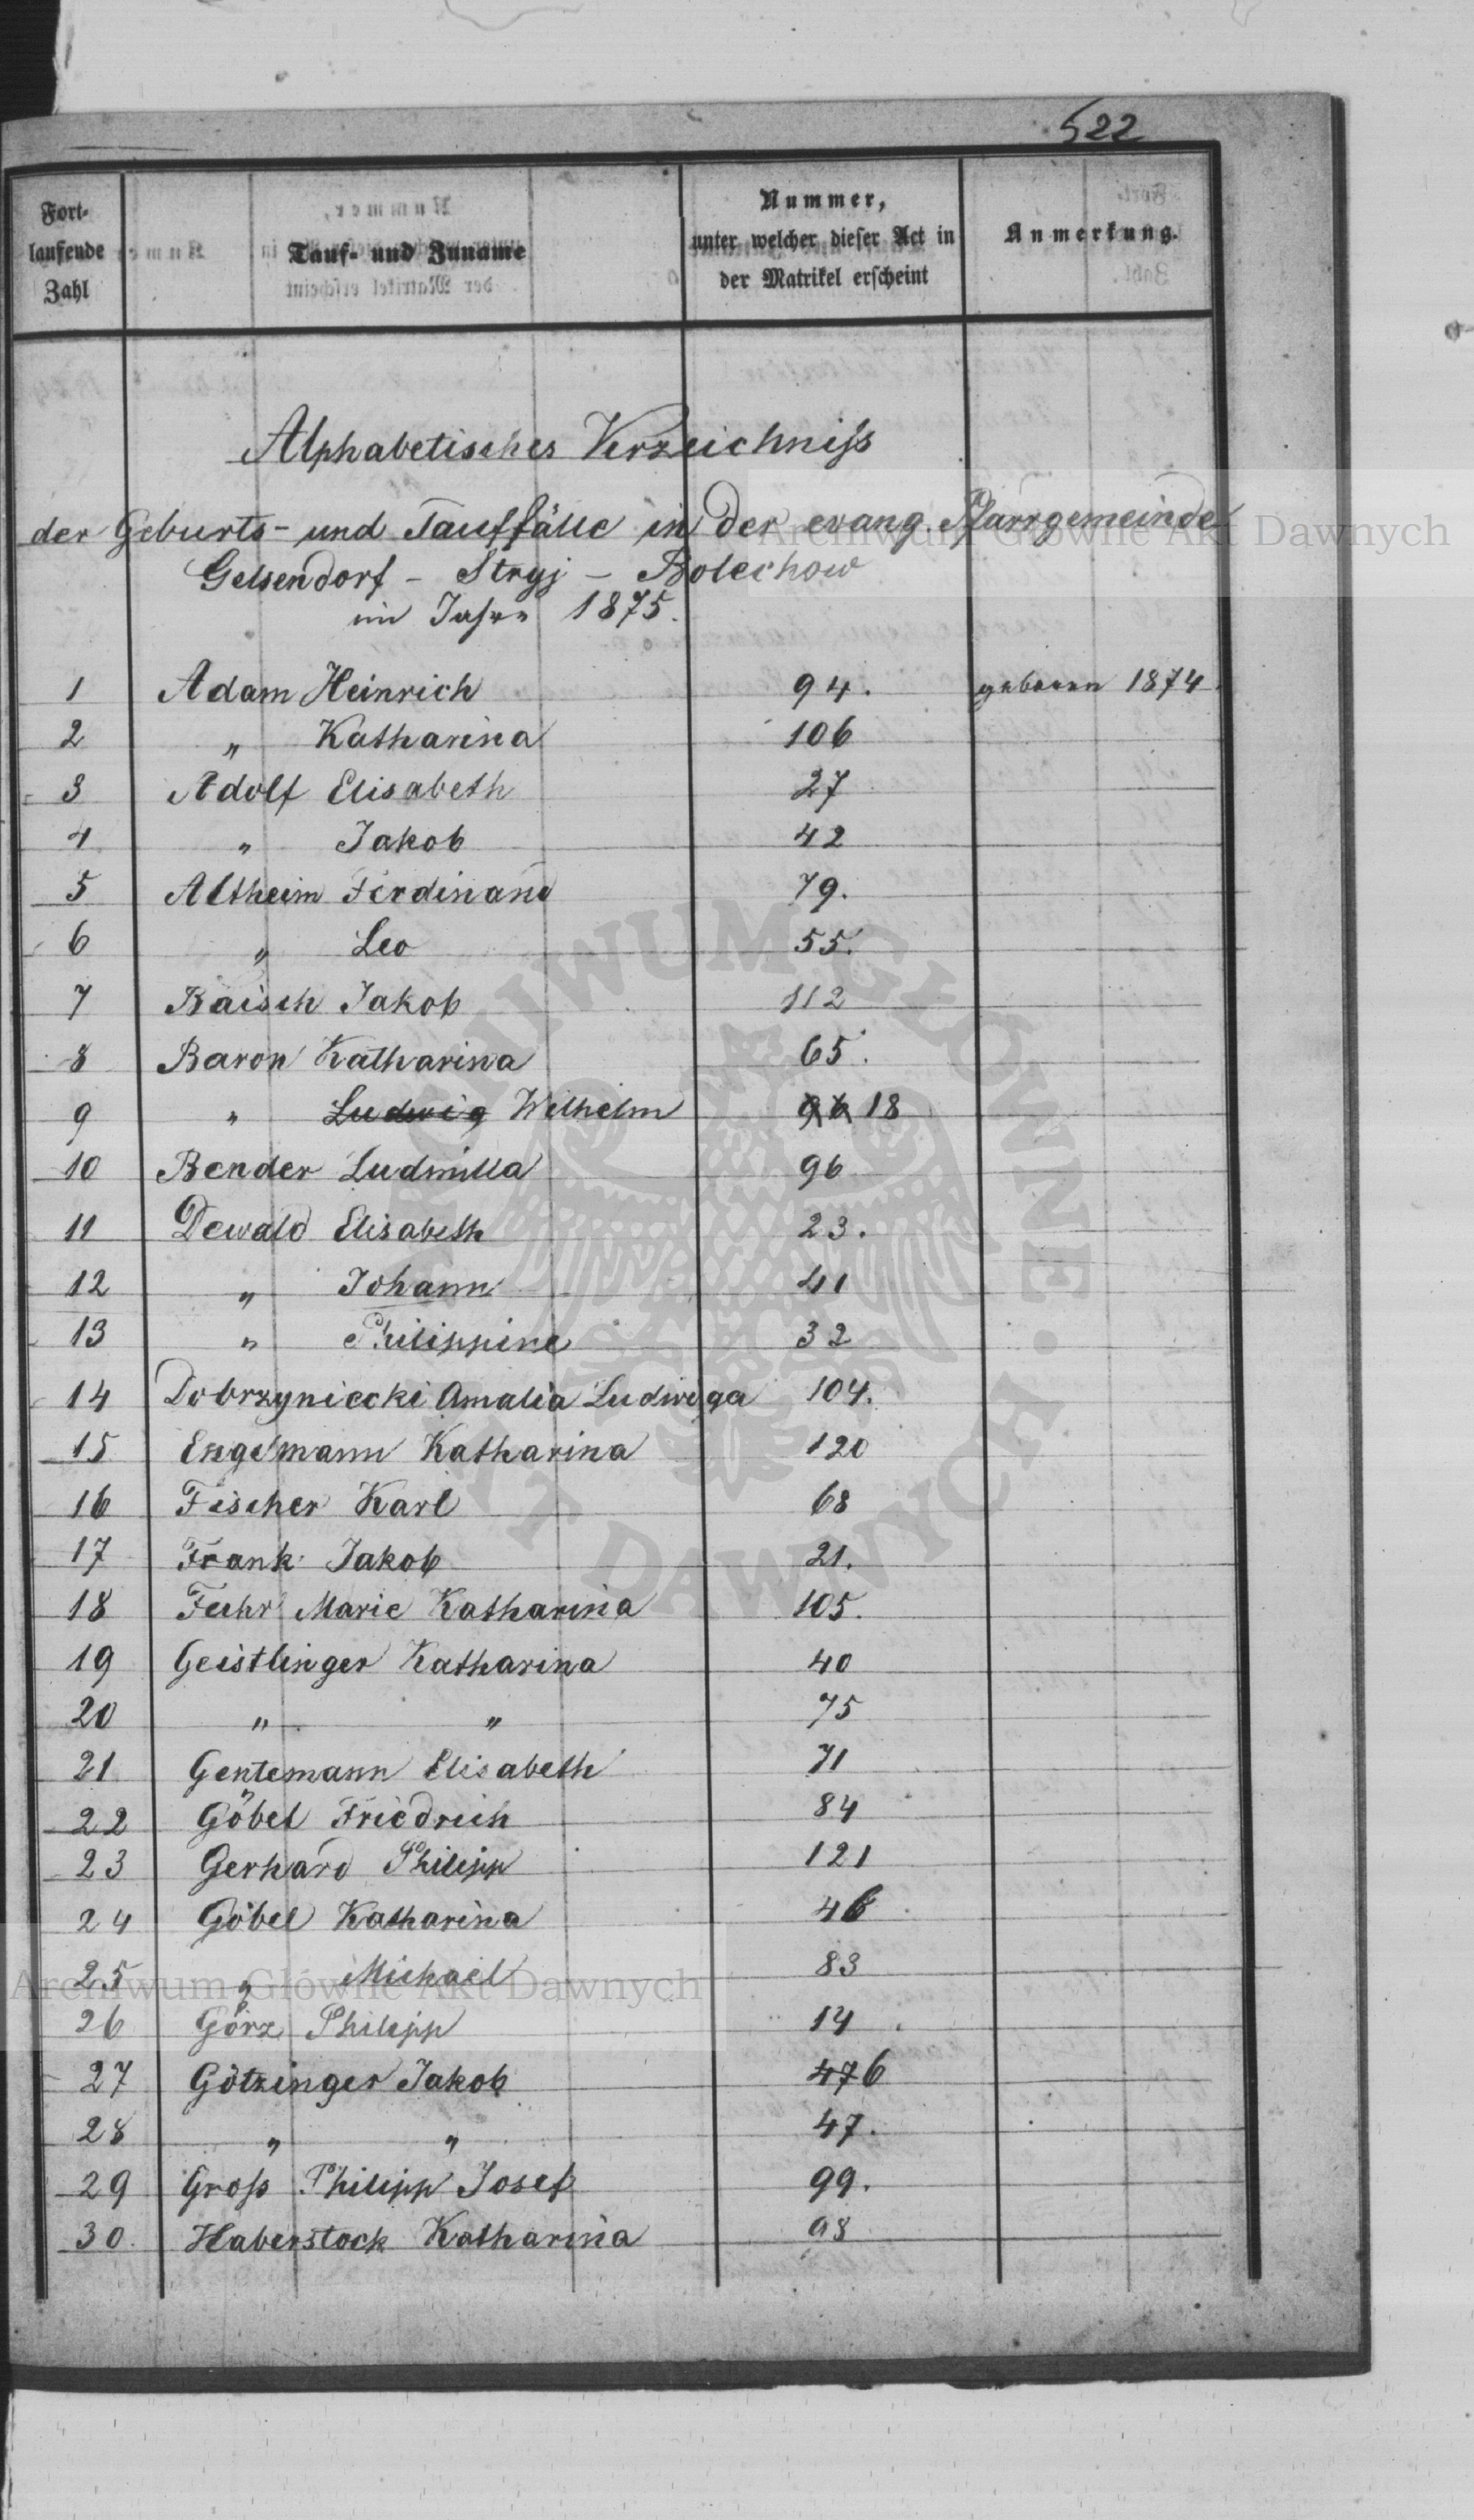 522
Fort-laufende Zahl | Tauf- und Zuname | Nummer, unter welcher dieser Act in der Matrikel erscheint | Anmerkung.
Alphabetisches Verzeichniß
der Geburts- und Tauffälle in der evang. Pfarrgemeinde
Gelsendorf - Stryj - Bolechow
im Jahre 1875.
1 Adam Heinrich 94. geboren 1874.
2 " Katharina 106
3 Adolf Elisabeth 27
4 " Jakob 42
5 Altheim Ferdinand 79.
6 " Leo 55.
7 Baisch Jakob 112
8 Baron Katharina 65.
9 " Ludwig Wilhelm 96 18
10 Bender Ludmilla 96
11 Dewald Elisabeth 23.
12 " Johann 41
13 " Philippine 32
14 Dobrzyniecki Amalia Ludwiga 104.
15 Engelmann Katharina 120
16 Fischer Karl 68
17 Frank Jakob 21.
18 Fuhr Marie Katharina 105.
19 Geistlinger Katharina 40
20 " " 75
21 Gentemann Elisabeth 71
22 Göbel Friedrich 84
23 Gerhard Philipp 121
24 Göbel Katharina 46
25 " Michael 83
26 Görz Philipp 14.
27 Götzinger Jakob 476
28 " " 47.
29 Groß Philipp Josef 99.
30. Haberstock Katharina 98
Archiwum Główne Akt Dawnych
Archiwum Główne Akt Dawnych
ARCHIWUM GŁÓWNE AKT DAWNYCH